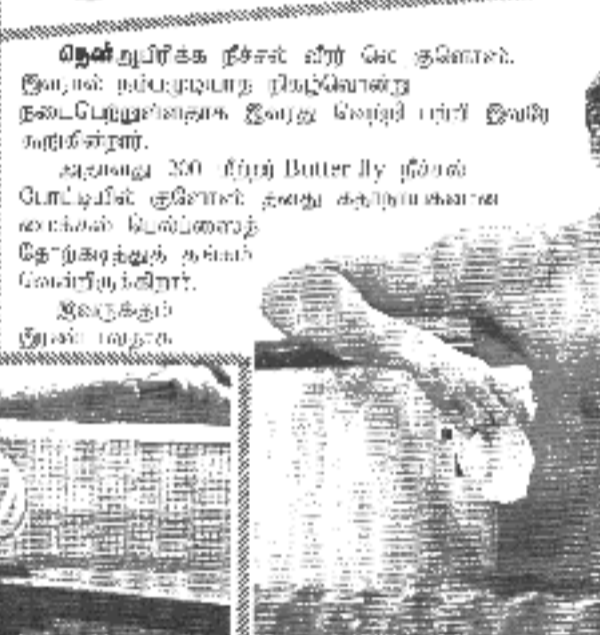 தென்அபிரிக்க நீச்சல் வீரர் லெ குளொஸ்.
இவரால் நம்பமுடியாத நிகழ்வொன்று
நடைபெற்றுள்ளதாக இவரது வெற்றி பற்றி இவரே
கூறுகின்றார்.
அதாவது 200 மீற்றர் Butter fly நீச்சல்
போட்டியில் குளோஸ் தனது கதாநாயகனான
மைக்கல் பெல்ப்ஸைத்
தோற்கடித்துத் தங்கம்
வென்றிருக்கிறார்.
இவருக்கும்